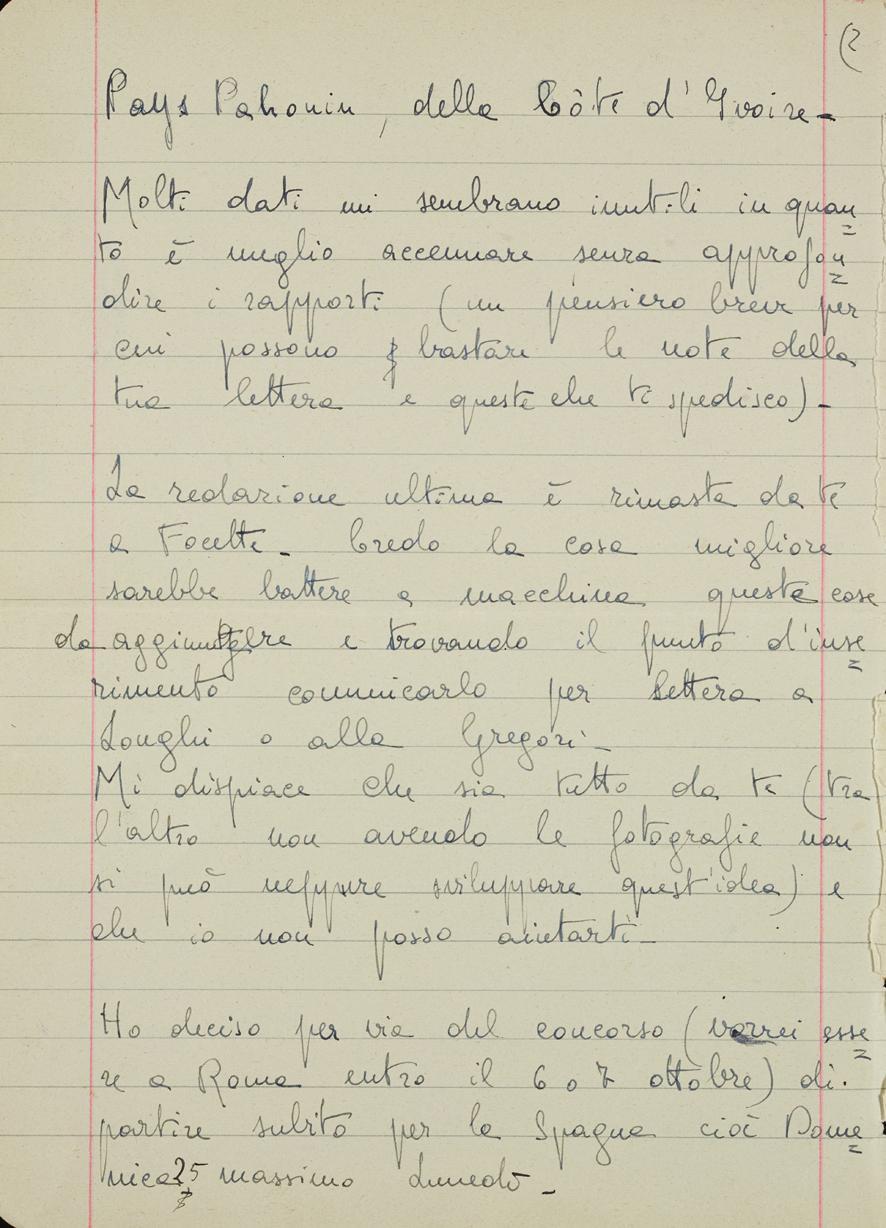 (2
Pays Pahouin, della Côte d'Yvoire -
Molti dati mi sembrano inutili in quan
to è meglio accennare senza approfon
dire i rapporti (un pensiero breve per
cui possono bastare le note della
tua lettera e queste che ti spedisco) -
La redazione ultima è rimasta da te
a Focette - Credo la cosa migliore
sarebbe battere a macchina queste cose
da aggiungere e trovando il punto d'inse
rimento comunicarlo per lettera a
Longhi o alla Gregori -
Mi dispiace che sia tutto da te (tra
l'altro non avendo le fotografie non
si può neppure sviluppare quest'idea) e
che io non posso aiutarti -
Ho deciso per via del concorso (vorrei esse
re a Roma entro il 6 o 7 ottobre) di
partire subito per la Spagna cioè Dome
nica 25 massimo lunedò -